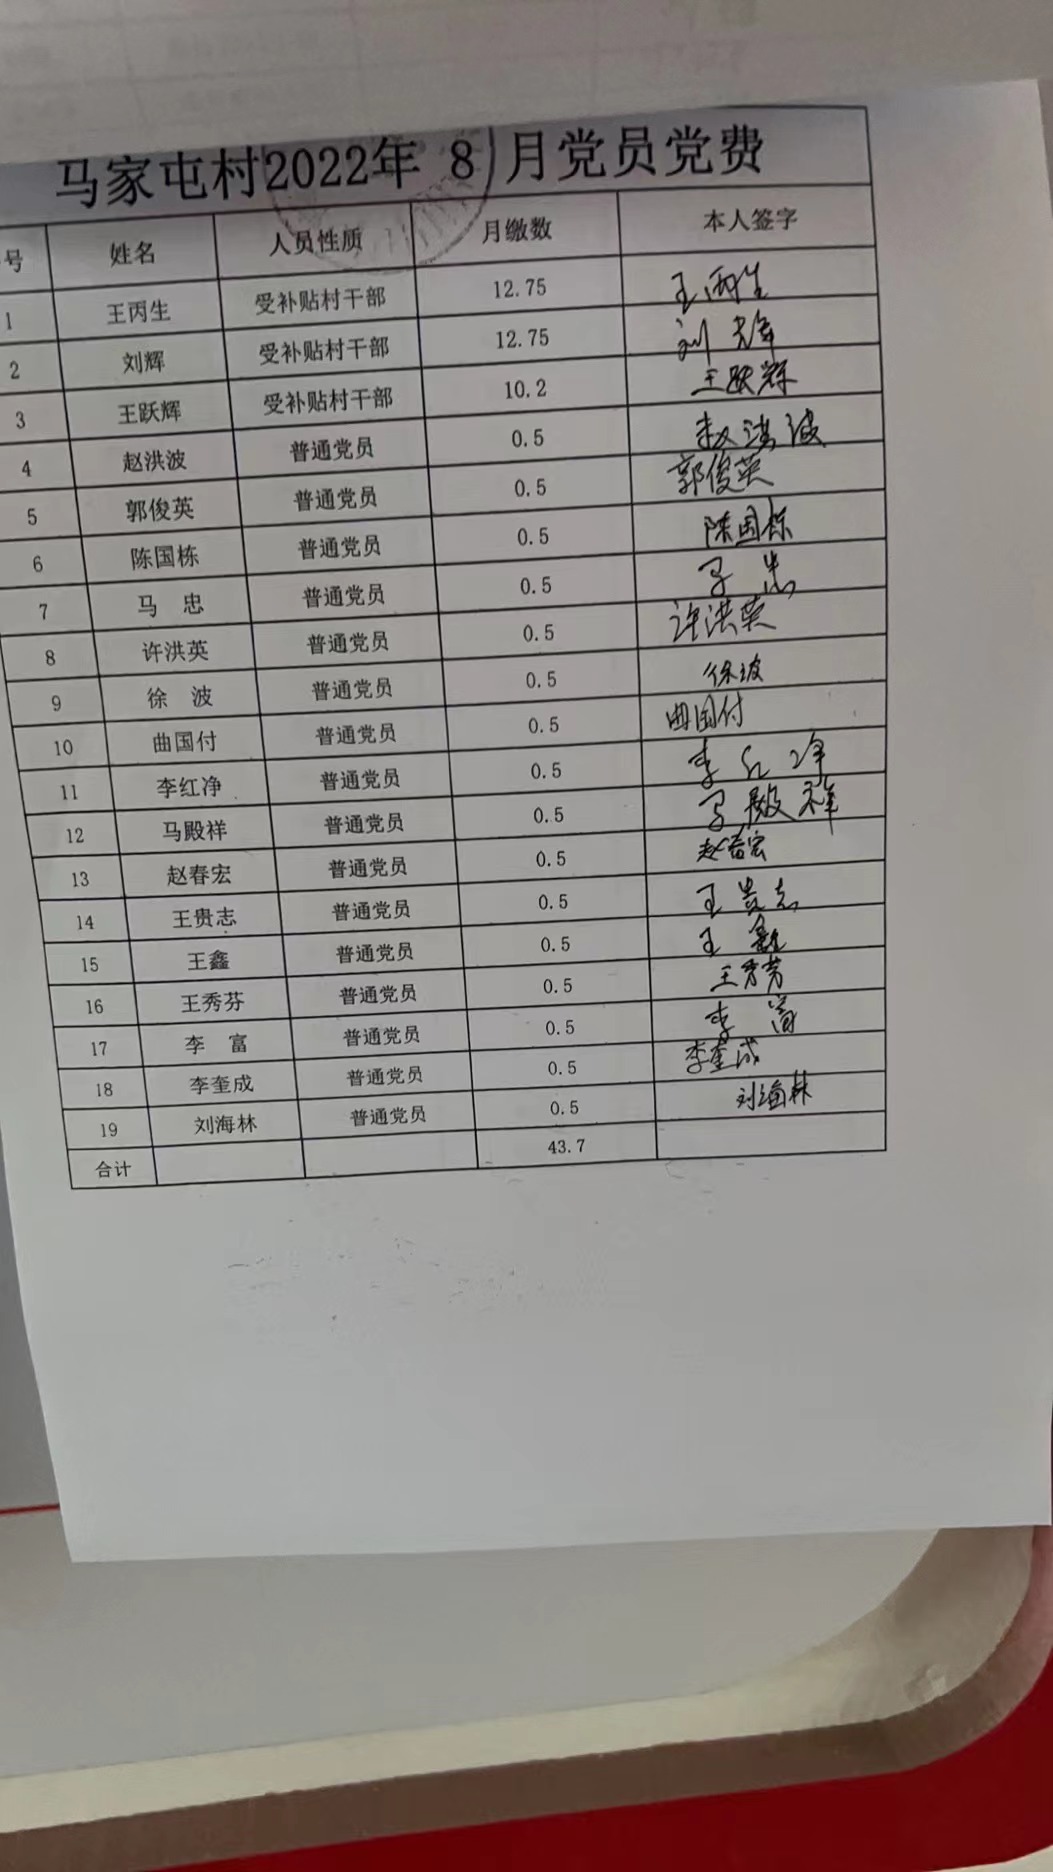 马家屯村2022年 8 月党员党费
号 姓名 人员性质 月缴数 本人签字
1 王丙生 受补贴村干部 12.75 王丙生
2 刘辉 受补贴村干部 12.75 刘辉
3 王跃辉 受补贴村干部 10.2 王跃辉
4 赵洪波 普通党员 0.5 赵洪波
5 郭俊英 普通党员 0.5 郭俊英
6 陈国栋 普通党员 0.5 陈国栋
7 马 忠 普通党员 0.5 马 忠
8 许洪英 普通党员 0.5 许洪英
9 徐 波 普通党员 0.5 徐波
10 曲国付 普通党员 0.5 曲国付
11 李红净 普通党员 0.5 李红净
12 马殿祥 普通党员 0.5 马殿祥
13 赵春宏 普通党员 0.5 赵春宏
14 王贵志 普通党员 0.5 王贵志
15 王鑫 普通党员 0.5 王鑫
16 王秀芬 普通党员 0.5 王秀芳
17 李 富 普通党员 0.5 李 富
18 李奎成 普通党员 0.5 李奎成
19 刘海林 普通党员 0.5 刘海林
合计 43.7